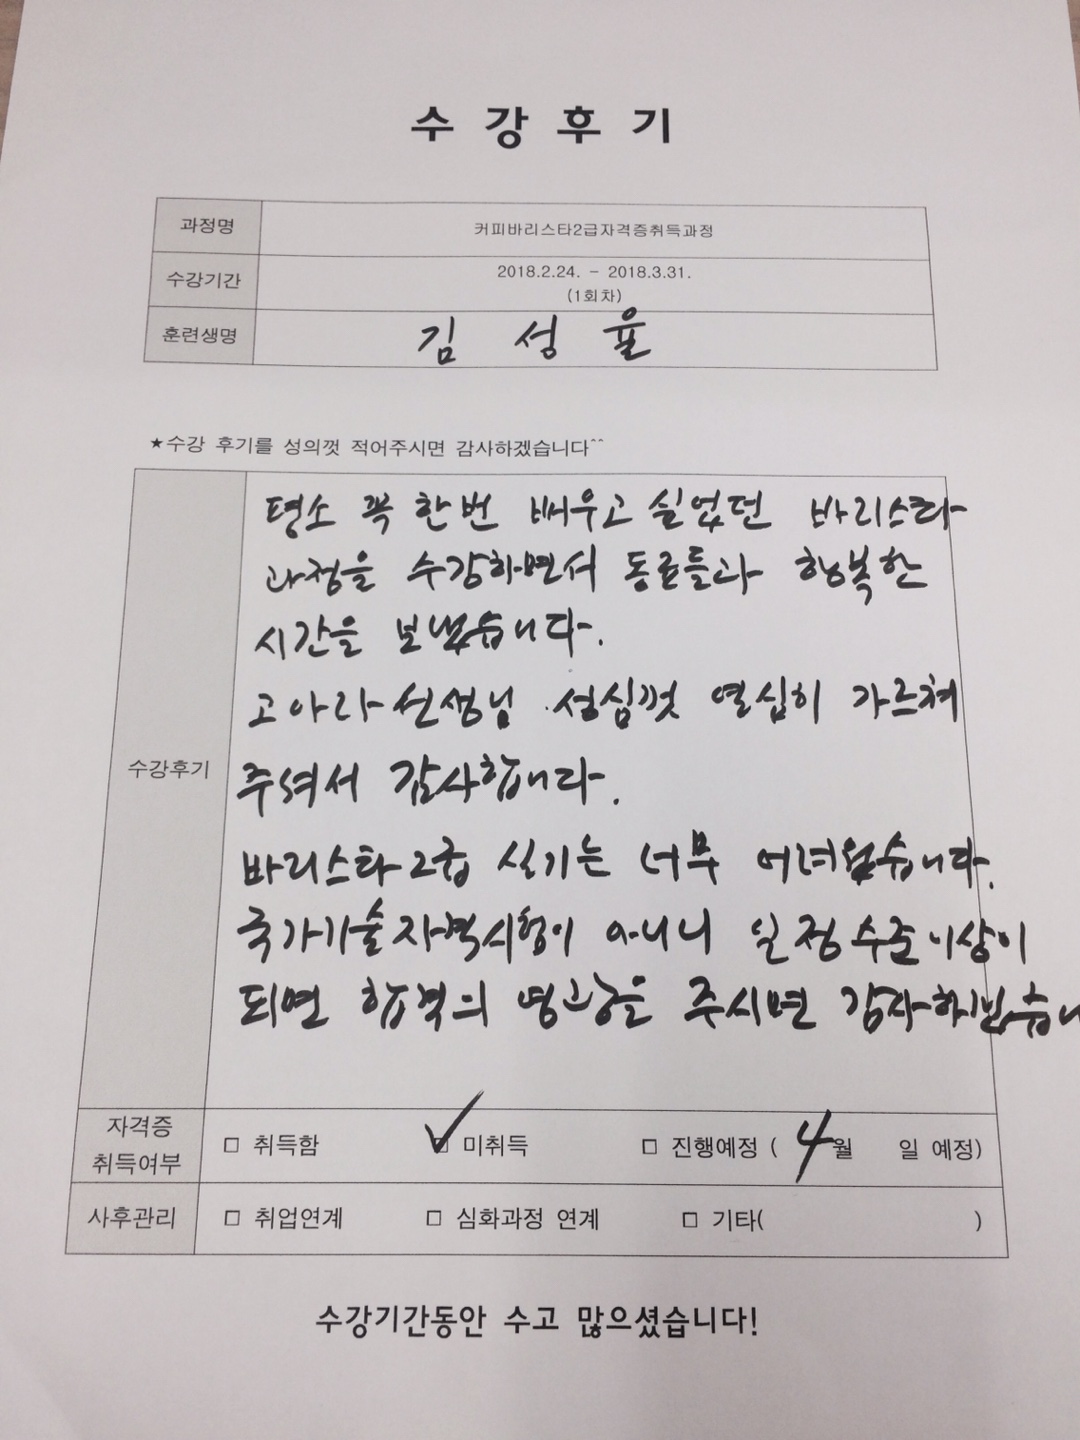 수 강 후 기
과정명 커피바리스타2급자격증취득과정
수강기간 2018.2.24. - 2018.3.31.
(1회차)
훈련생명 김 성 율
★수강 후기를 성의껏 적어주시면 감사하겠습니다^^
평소 꼭 한번 배우고 싶었던 바리스타
과정을 수강하면서 동료들과 행복한
시간을 보냈습니다.
고아라 선생님 성심껏 열심히 가르쳐
수강후기
주셔서 감사합니다.
바리스타2급 실기는 너무 어려웠습니다.
국가기술자격시험이 아니니 일정수준이상이
되면 합격의 영광을 주시면 감사하겠습니
자격증
취득여부 □ 취득함 □ 미취득 □ 진행예정 ( 4월 일 예정)
사후관리 □ 취업연계 □ 심화과정 연계 □ 기타( )
수강기간동안 수고 많으셨습니다!